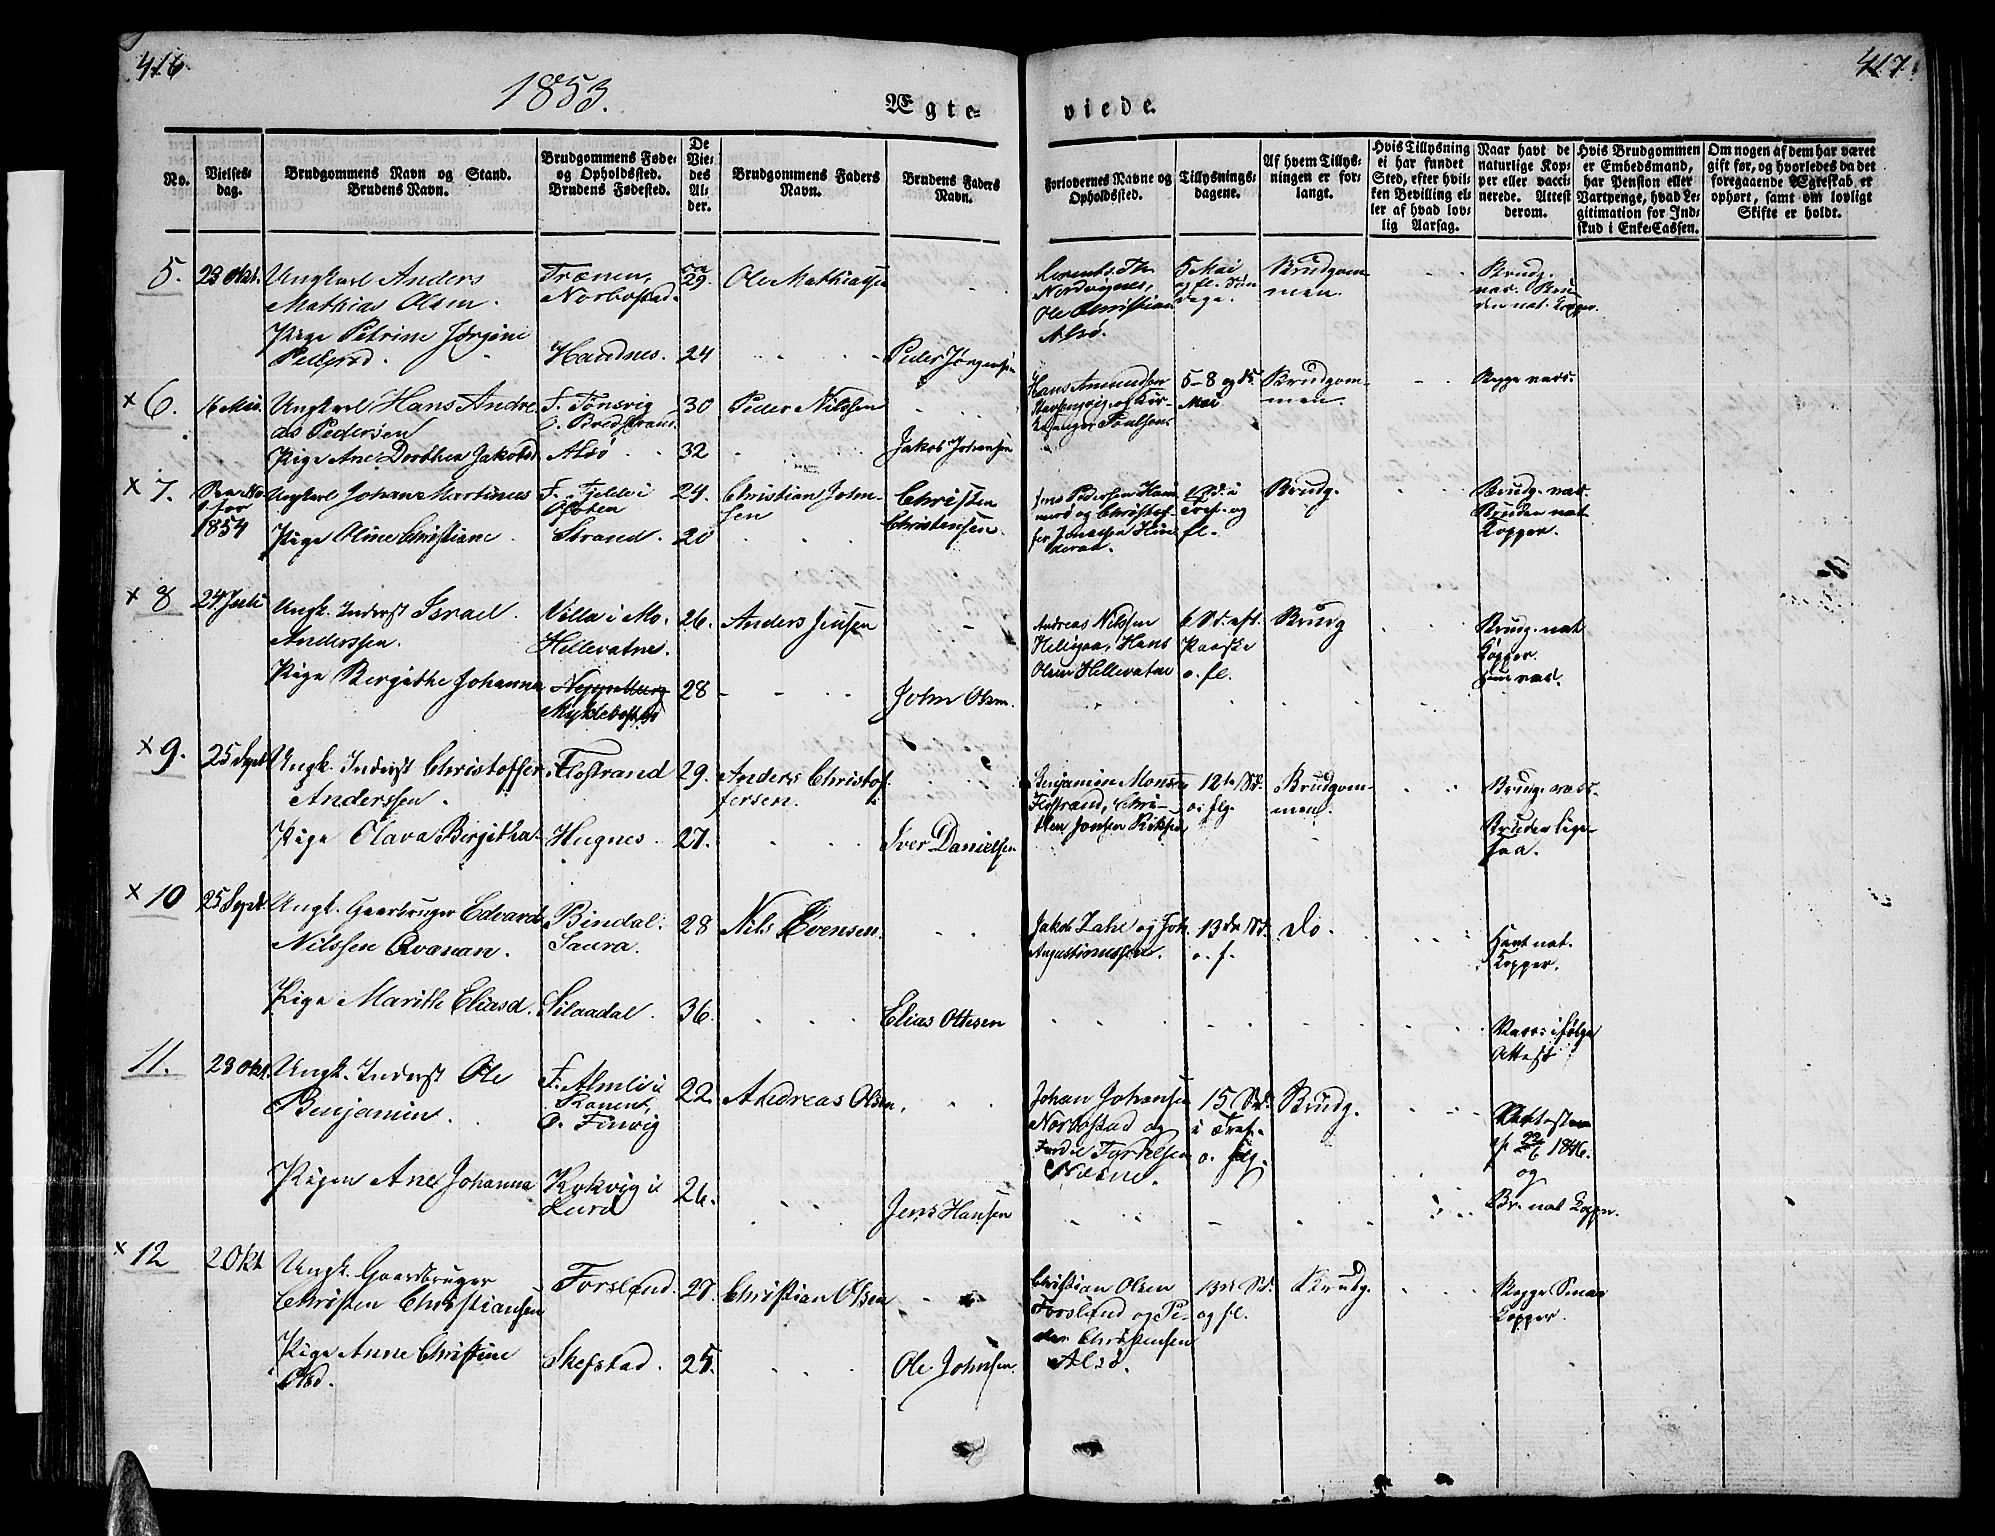 416.
417.
1853.
Ægte-
viede.
No.
Vielses-
dag.
Brudgommens Navn og Stand.
Brudens Navn.
Brudgommens Føde-
og Opholdssted.
Brudens Fødested.
De
Vie-
des
Al-
der.
Brudgommens Faders
Navn.
Brudens Faders
Navn.
Forlovernes Navne og
Opholdssted.
Tillysnings-
dagene.
Af hvem Tillys-
ningen er for-
langt.
Hvis Tillysning
ei har fundet
Sted, efter hvil-
ken Bevilling el-
ler af hvad lov-
lig Aarsag.
Naar havt de
naturlige Kop-
per eller vacci-
nerede. Attest
derom.
Hvis Brudgommen
er Embedsmand,
har Pension eller
Vartpenge, hvad Le-
gitimation for Ind-
skud i Enke-Cassen.
Om nogen af dem har været
gift før, og hvorledes da det
foregaaende Ægteskab er
ophørt, samt om lovligt
Skifte er holdt.
5.
23 Okt.
Ungkarl Anders
Mathias Olsen.
Trænen,
Norbostad.
29.
Ole Mathiassen
Nordvignes,
Ole Christian
Alsø.
5 Mai
Brudgom-
men.
Brudg.
vac. Bru
den nat. Kopper.
Pige Petrine Jørgine
Pedersd.
Handnes.
24
Peder Jørgensen
x 6.
Ungkarl Hans Andre
as Pedersen
F. Tønsvig
O. Bredstrand
30
Peder Nilssen
Hans Amundsen
5-8 og 15
Mai
Brudgom-
men.
Begge vacc.
Pige Ane Dorthea Jakobsd.
Alsø
32
Jakob Johansen
x 7.
1854
Ungkarl Johan Martinus
F. Fjeld i
Ofoten
24.
Christian John-
sen
Christen
Christensen.
Jens Pedersen
og Christof-
fer Jonassen
Brudg.
Brudg. vac.
Bruden nat.
Kopper.
Pige Oline Christiane
Strand.
20
x 8
24 Juli
Ungk. Inderst Israel
Anderssen.
Villa i Mo.
Hellevatne.
26.
Anders Jensen
Andreas Nilssen
Heligaa, Hans
Olsen Hellevatne
6 Sd. eft.
Paaske
o. fl.
Brudg
Brudg. nat
Kopper.
Pige Bergithe Johanna
Myklebostad
28
John Olsen.
x 9.
25 Sept.
Ungk. Inderst Christoffer
Anderssen.
Flostrand
29.
Anders Christof
fersen.
Benjamin Monsen
Flostrand, Chri-
sten Jonsen
12te Sd.
o. flg.
Brudgom-
men.
Brudg. vacc.
Bruden lige-
saa.
Pige Olava Bergitha
Hugnes.
27.
Iver Danielsen
x 10
25 Sept.
Ungk. Gaardbruger Edvard
Nilssen Qvanan.
Bindal.
Saura.
28
Nils Evensen.
Jakob Zahl og Joh.
Augustinussen.
13de Sd.
o. f.
do.
Havt nat.
Kopper.
Pige Marith Eliasd.
Silaadal.
36.
Elias Ottesen
Vacc. ifølge
Attest
11.
23 Okt.
Ungk. Inderst Ole
Benjamin.
F. Almli i
Ranen,
O. Finvig
22.
Andreas Olsen.
Johan Johansen
Norbostad og
Nesne.
15 Sd.
i Tref.
o. flg.
Brudg.
22/6 1846.
og
Br. nat. Kopper.
Pigen Ane Johanna
Kokvig i
Lurø
26.
Jens Hansen
x 12
2 Okt
Ungk. Gaardbruger
Christen Christiansen
Forsland.
27.
Christian Olsen
Christian Olsen
Forsland og Pe-
der Christensen
Alsø.
13de Sd.
og fl.
Brudg.
Begge Smaa
Kopper.
Pige Anne Christine
Olsd.
Skefstad.
25.
Ole Johnsen.